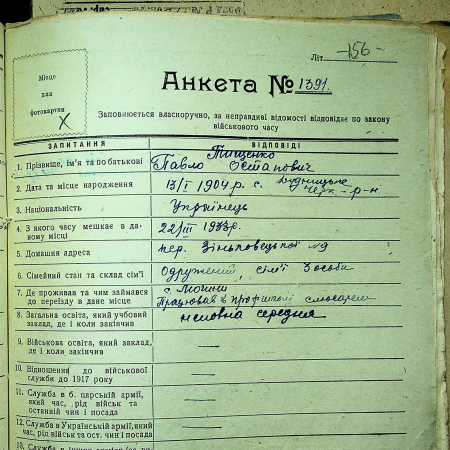 Літ. -156-
Місце
для
фотокартки
Анкета № 1391.
Заповнюється власноручно, за неправдиві відомості відповідає по закону
військового часу
ЗАПИТАННЯ ВІДПОВІДІ
1. Прізвище, ім'я та по батькові Тищенко
Павло Остапович
2. Дата та місце народження 13/I 1904 р. с.
р-н
3. Національність Українець
4. З якого часу мешкає в да-
ному місці 22/III 1933р.
5. Домашня адреса пер. Зіньковецької №9
6. Сімейний стан та склад сім'ї Одружений, сім'ї 3 особи
7. Де проживав та чим займався
до переїзду в дане місце с.
Працював слюсарем
8. Загальна освіта, який учбовий
заклад, де і коли закінчив неповна середня
9. Військова освіта, який заклад,
де і коли закінчив —
10. Відношення до військової
служби до 1917 року —
11. Служба в б. царській армії,
який час, рід військ та
останній чин і посада —
12. Служба в Українській армії, який
час, рід військ та ост. чин і посада —